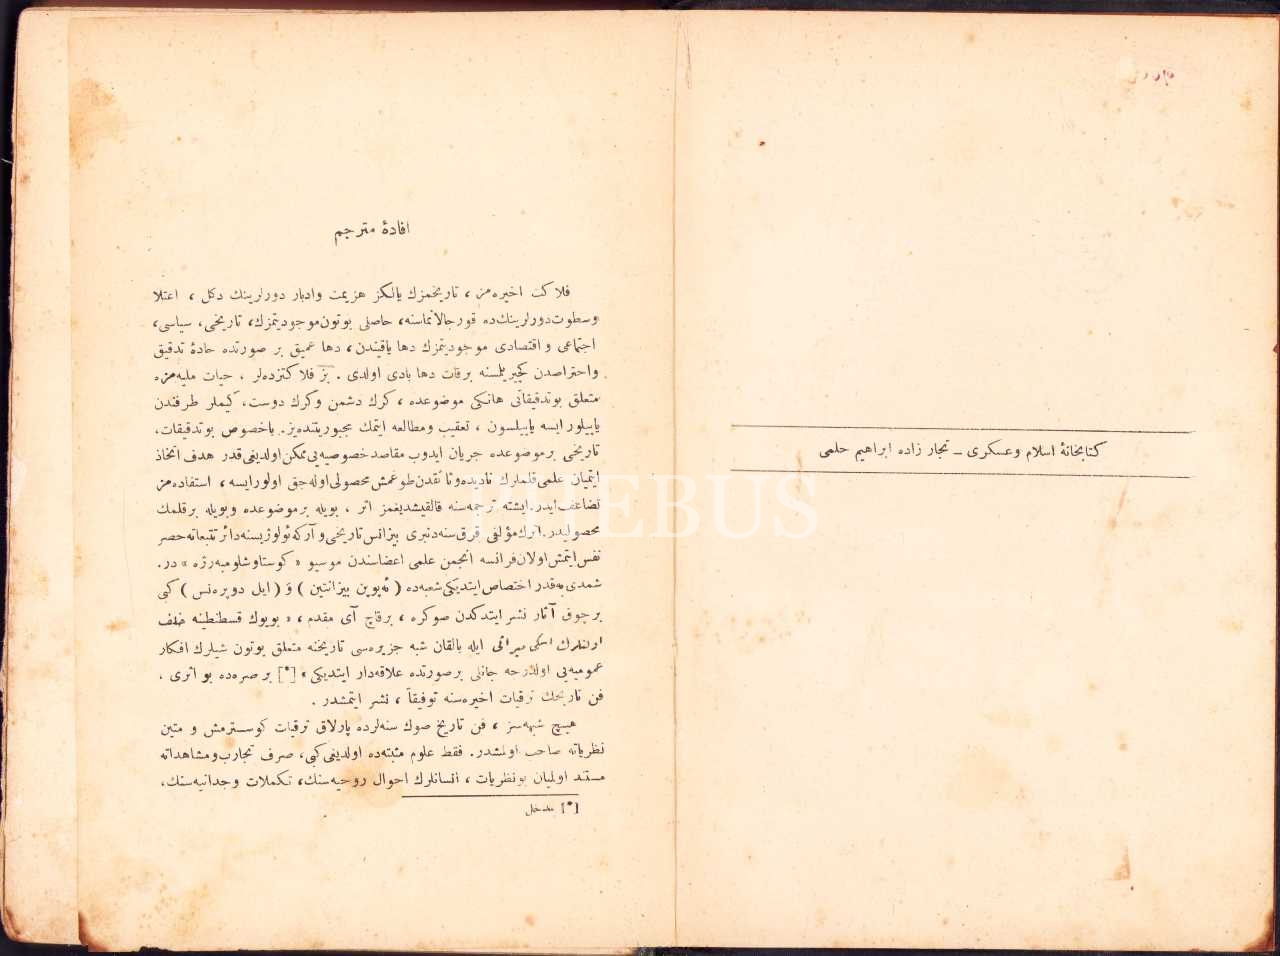 كتابخانهٔ اسلام وعسكری ــ تجار زاده ابراهيم حلمی
افادهٔ مترجم
فلاكت اخيره‌مز ، تاريخمزك يالكز هزيمت وادبار دورلرينك دكل ، اعتلا
وسطوت‌دورلرينك‌ده قورجالانماسنه، حاصلی بوتون‌موجوديتمزك، تاريخی، سياسی،
اجتماعی و اقتصادی موجوديتمزك دها ياقيندن، دها عميق بر صورتده حادهٔ تدقيق
واحتراصدن كچيريلمسنه برقات دها بادی اولدی . بز فلاكتزده‌لر ، حيات مليه‌مزه
متعلق بوتدقيقاتی هانكی موضوعده ، كرك دشمن وكرك دوست، كيملر طرفندن
ياپيلور ايسه ياپيلسون ، تعقيب ومطالعه ايتمك مجبوريتنده‌يز. باخصوص بوتدقيقات،
تاريخی برموضوعده جريان ايدوب مقاصدخصوصيه‌يی ممكن‌اولديغی‌قدر هدف اتخاذ
ايتميان علمی‌قلملرك ناديده‌و طوغمش محصولی‌اوله‌جق اولورايسه ، استفاده‌مز
تضاعف‌ايدر.ايشته ترجمه‌سنه قالقيشديغمز اثر ، بويله برموضوعده وبويله برقلمك
محصوليدر.اثرك‌مؤلفی قرق‌سنه‌دنبری بيزانس‌تاريخی‌و آركه‌ئولوژيسنه‌دائر تتبعاته‌حصر
نفس‌ايتمش‌اولان‌فرانسه انجمن علمی اعضاسندن موسيو « كوستاوشلومبه‌رژه » در.
شمدی‌به‌قدر اختصاص ايتديكی‌شعبه‌ده ( ئه‌پوپن بيزانتين ) و ( ايل دوپره‌نس ) كبی
برچوق آثار نشر ايتدكدن صوكره ، برقاچ آی مقدم ، « بويوك قسطنطينه خلف
اولنلرك اسكی ميراثی ايله بالقان شبه جزيره‌سی تاريخنه متعلق بوتون شيلرك افكار
عموميه‌يی اولدرجه جانلی برصورتده علاقه‌دار ايتديكی » [*] بر صره‌ده بو اثری ،
فن تاريخك ترقيات اخيره‌سنه توفيقاً ، نشر ايتمشدر .
هيچ شبهه‌سز ، فن تاريخ صوك سنه‌لرده پارلاق ترقيات كوسترمش و متين
نظرياته صاحب اولمشدر. فقط علوم مثبته‌ده اولديغی‌كبی، صرف تجارب‌ومشاهداته
مستند اولميان بونظريات ، انسانلرك احوال روحيه‌سنك، تكملات وجدانيه‌سنك،
[*] مدخل